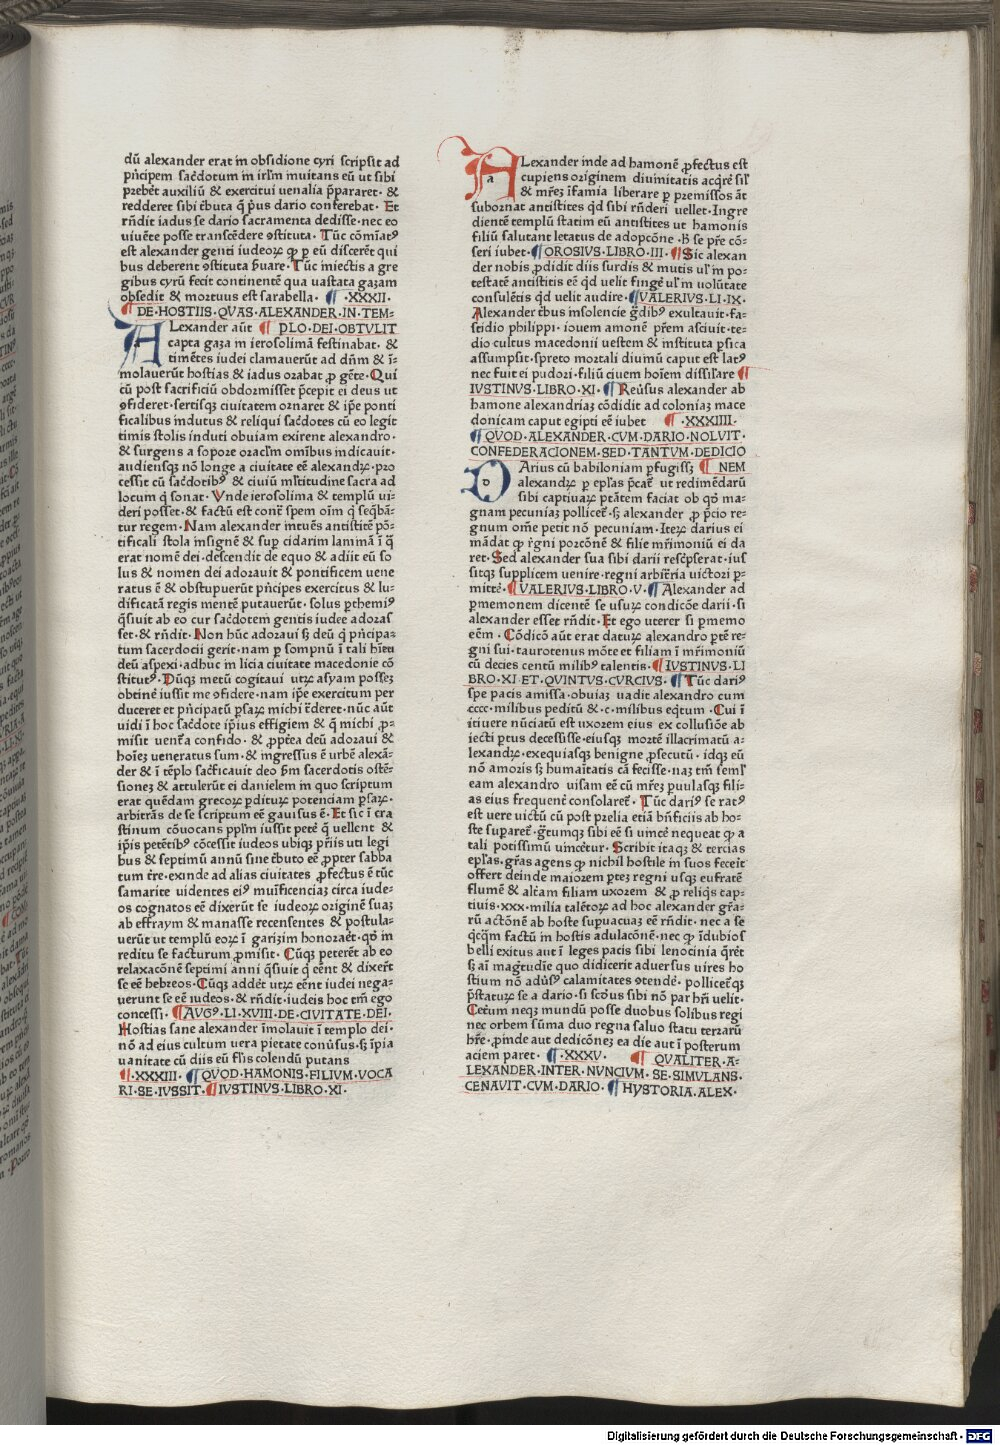 dū alexander erat in obsidione tyri scripsit ad
pn̄cipem sac̄dotum in irl̄m inuitans eū ut sibi
prebēt auxiliū & exercitui uenalia p̄pararet · &
redderet sibi t̄buta q̄ p̄us dario conferebat · Et
rn̄dit iadus se dario sacramenta dedisse · nec eo
uiuēte posse transcēdere ꝯstituta · Tūc cōmīatꝰ
est alexander genti iudeoꝝ ꝙ ꝑ eū discerēt qui
bus deberent ꝯstituta ẜuare · Tūc iniectis a gre
gibus cyrū fecit continentē qua uastata gazam
obsedit & mortuus est sarabella · ¶ ·XXXII·
¶ DE·HOSTIIS·QVAS·ALEXANDER·IN·TEM-
ALexander aūt ¶ PLO·DEI·OBTVLIT
capta gaza in ierosolimā festinabat · &
timētes iudei clamauerūt ad dn̄m & ī-
molauerūt hostias & iadus orabat ꝓ gēte · Qui
cū post sacrificiū obdormisset p̄cepit ei deus ut
ꝯfideret · sertisqꝫ ciuitatem ornaret & ip̄e ponti
ficalibus indutus & reliqui sac̄dotes cū eo legit
timis stolis induti obuiam exirent alexandro ·
& surgens a sopore oraclm̄ omībus indicauit ·
audiensqꝫ nō longe a ciuitate eē alexandꝝ · pro
cessit cū sac̄dotibꝰ & ciuiū ml̄titudine sacra ad
locum q̄ sonat · Vnde ierosolima & templū ui-
deri posset · & factū est cont̄ spem oīm q̄ seq̄bā-
tur regem · Nam alexander intuēs antistitē pō-
tificali stola insignē & suꝑ cidarim laminā ī q̄
erat nomē dei · descendit de equo & adiit eū so
lus & nomen dei adorauit & pontificem uene
ratus ē & obstupuerūt pn̄cipes exercitus & lu-
dificatā regis mentē putauerūt · solus ꝑthemiꝰ
q̄siuit ab eo cur sac̄dotem gentis iudee adoras
set · & rn̄dit · Non hūc adoraui sꝫ deū q̄ pn̄cipa-
tum sacerdocii gerit · nam ꝑ sompnū ī tali hītu
deū aspexi · adhuc in licia ciuitate macedonie cō
stitutꝰ · Dūqꝫ metū cogitaui utꝝ asyam possez
obtinē iussit me ꝯfidere · nam ip̄e exercitum per
duceret et pn̄cipatū ꝑsaꝝ michi t̄deret · nūc aūt
uidi ī hoc sac̄dote ip̄ius effigiem & q̄ michi ꝓ-
misit uent̄a confido · & ꝓptea deū adoraui &
hoīez ueneratus sum · & ingressus ē urbē alexā-
der & ī tēplo sac̄ficauit deo ẜm sacerdotis ostē-
sionez & attulerūt ei danielem in quo scriptum
erat quēdam grecoꝝ ꝑdituꝝ potenciam ꝑsaꝝ ·
arbitrās de se scriptum eē gauisus ē · Et sic ī cra
stinum cōuocans ppl̄m iussit petē q̄ uellent &
ip̄is petētibꝰ cōcessit iudeos ubiqꝫ pr̄iis uti legi
bus & septimū annū sine t̄buto eē ꝓpter sabba
tum t̄re · exinde ad alias ciuitates ꝓfectus ē tūc
samarite uidentes eiꝰ muīficenciaꝫ circa iude-
os cognatos eē dixerūt se iudeoꝝ originē suaꝫ
ab effraym & manasse recensentes & postula-
uerūt ut templū eoꝝ ī garizim honoraēt · qꝺ in
reditu se facturum ꝓmisit · Cūqꝫ peterēt ab eo
relaxacōnē septimi anni q̄siuit q̄ eēnt & dixer̄t
se eē hebreos · Cūqꝫ addēt utꝝ eēnt iudei nega-
uerunt se eē iudeos · & rn̄dit · iudeis hoc tm̄ ego
concessi · ¶ AVGꝰ·LI·XVIII·DE·CIVITATE·DEI·
Hostias sane alexander īmolauit ī templo dei ·
nō ad eius cultum uera pietate conūsus · sꝫ īpia
uanitate cū diis eū fl̄is colendū putans
¶ ·XXXIII· ¶ QVOD·HAMONIS·FILIVM·VOCA
RI·SE·IVSSIT· ¶ IVSTINVS·LIBRO·XI·
ALexander inde ad hamonē ꝓfectus est
cupiens originem diuinitatis acq̄rē sil̄
& mr̄es īfamia liberare ꝑ premissos āt
subornat antistites qd̄ sibi rn̄deri uellet · Ingre
dientē templū statim eū antistites ut hamonis
filiū salutant letatus de adopcōne · h̄ se pr̄e cō-
seri iubet · ¶ OROSIVS·LIBRO·III· ¶ Sic alexan
der nobis ꝓdidit diis surdis & mutis ul̄ in po-
testatē antistitis eē qd̄ uelit fingē ul̄ in uolūtate
consulētis qd̄ uelit audire · ¶ VALERIVS·LI·IX·
Alexander t̄bus insolencie gd̄ibꝰ exultauit · fa-
stidio philippi · iouem amonē pr̄em asciuit · te-
dio cultus macedonii uestem & instituta ꝑsica
assumpsit · spreto mortali diuinū caput est latꝰ
nec fuit ei pudori · filiū ciuem hoīem dissilare ¶
IVSTINVS·LIBRO·XI· ¶ Reūsus alexander ab
hamone alexandriaꝫ cōdidit ad coloniaꝫ mace
donicam caput egipti eē iubet ¶ ·XXXIIII·
¶ QVOD·ALEXANDER·CVM·DARIO·NOLVIT·
CONFEDERACIONEM·SED·TANTVM·DEDICIO
DArius cū babiloniam ꝑfugissꝫ ¶ NEM
alexandꝝ ꝑ epl̄as p̄cat̄ ut redimēdarū
sibi captiuaꝝ ptātem faciat ob qꝺ ma-
gnam pecuniaꝫ pollicet̄ · sꝫ alexander ꝓ p̄cio re-
gnum om̄e petit nō pecuniam · Iteꝝ darius ei
mādat ꝙ r̄gni porcōnē & filie mr̄imoniū ei da
ret · Sed alexander sua sibi darii resc̄pserat · ius
sitqꝫ supplicem uenire · regni arbit̄ria uictori ꝑ-
mittē · ¶ VALERIVS·LIBRO·V· ¶ Alexander ad
ꝑmemonem dicentē se usuꝝ condicōe darii · si
alexander esset rn̄dit · Et ego uterer si ꝑmemo
eēm · Cōdicō aūt erat datuꝝ alexandro ꝑtē re-
gni sui · taurotenus mōte et filiam ī mr̄imoniū
cū decies centū milibꝰ talentis · ¶ IVSTINVS·LI
BRO·XI·ET·QVINTVS·CVRCIVS· ¶ Tūc dariꝰ
spe pacis amissa · obuiaꝫ uadit alexandro cum
cccc · milibus peditū & · c · milibus eq̄tum · Cui ī
itiuere nūciatū est uxorem eius ex collusiōe ab
iecti ꝑtus decessisse · eiusqꝫ mortē illacrimatū a-
lexandꝝ · exequiasqꝫ benigne ꝓsecutū · idqꝫ eū
nō amoris sꝫ humaītatis cā fecisse · naꝫ tm̄ seml̄
eam alexandro uisam eē cū mr̄eꝫ puulasqꝫ fili-
as eius frequent̄ consolaret̄ · Tūc dariꝰ se ratꝰ
est uere uictū cū post prelia etiā bn̄ficiis ab ho-
ste suparet̄ · gt̄umqꝫ sibi eē si uincē nequeat ꝙ a
tali potissimū uincetur · Scribit itaqꝫ & tercias
epl̄as · gr̄as agens ꝙ nichil hostile in suos fecēit
offert deinde maiorem ꝑteꝫ regni usqꝫ eufratē
flumē & alt̄am filiam uxorem & ꝓ reliqis cap-
tiuis · xxx · milia talētoꝝ ad hoc alexander gr̄a-
rū actōnē ab hoste supuacuaꝫ eē rn̄dit · nec a se
qc̄qm̄ factū in hostis adulacōnē · nec ꝙ īdubios
belli exitus aut ī leges pacis sibi lenocinia q̄rēt
sꝫ aī magt̄udīe quo didicerit aduersus uires ho
stium nō adūsꝰ calamitates ꝯtendē · pollicet̄qꝫ
p̄statuꝝ se a dario · si scōus sibi nō par hr̄i uelit ·
Cet̄um neqꝫ mundū posse duobus solibus regi
nec orbem sūma duo regna saluo statu terrarū
hr̄e · ꝓinde aut dedicōneꝫ ea die aut ī posterum
aciem paret · ¶ ·XXXV· ¶ QVALITER·A-
LEXANDER·INTER·NVNCIVM·SE·SIMVLANS·
CENAVIT·CVM·DARIO· ¶ HYSTORIA·ALEX·
Digitalisierung gefördert durch die Deutsche Forschungsgemeinschaft · DFG